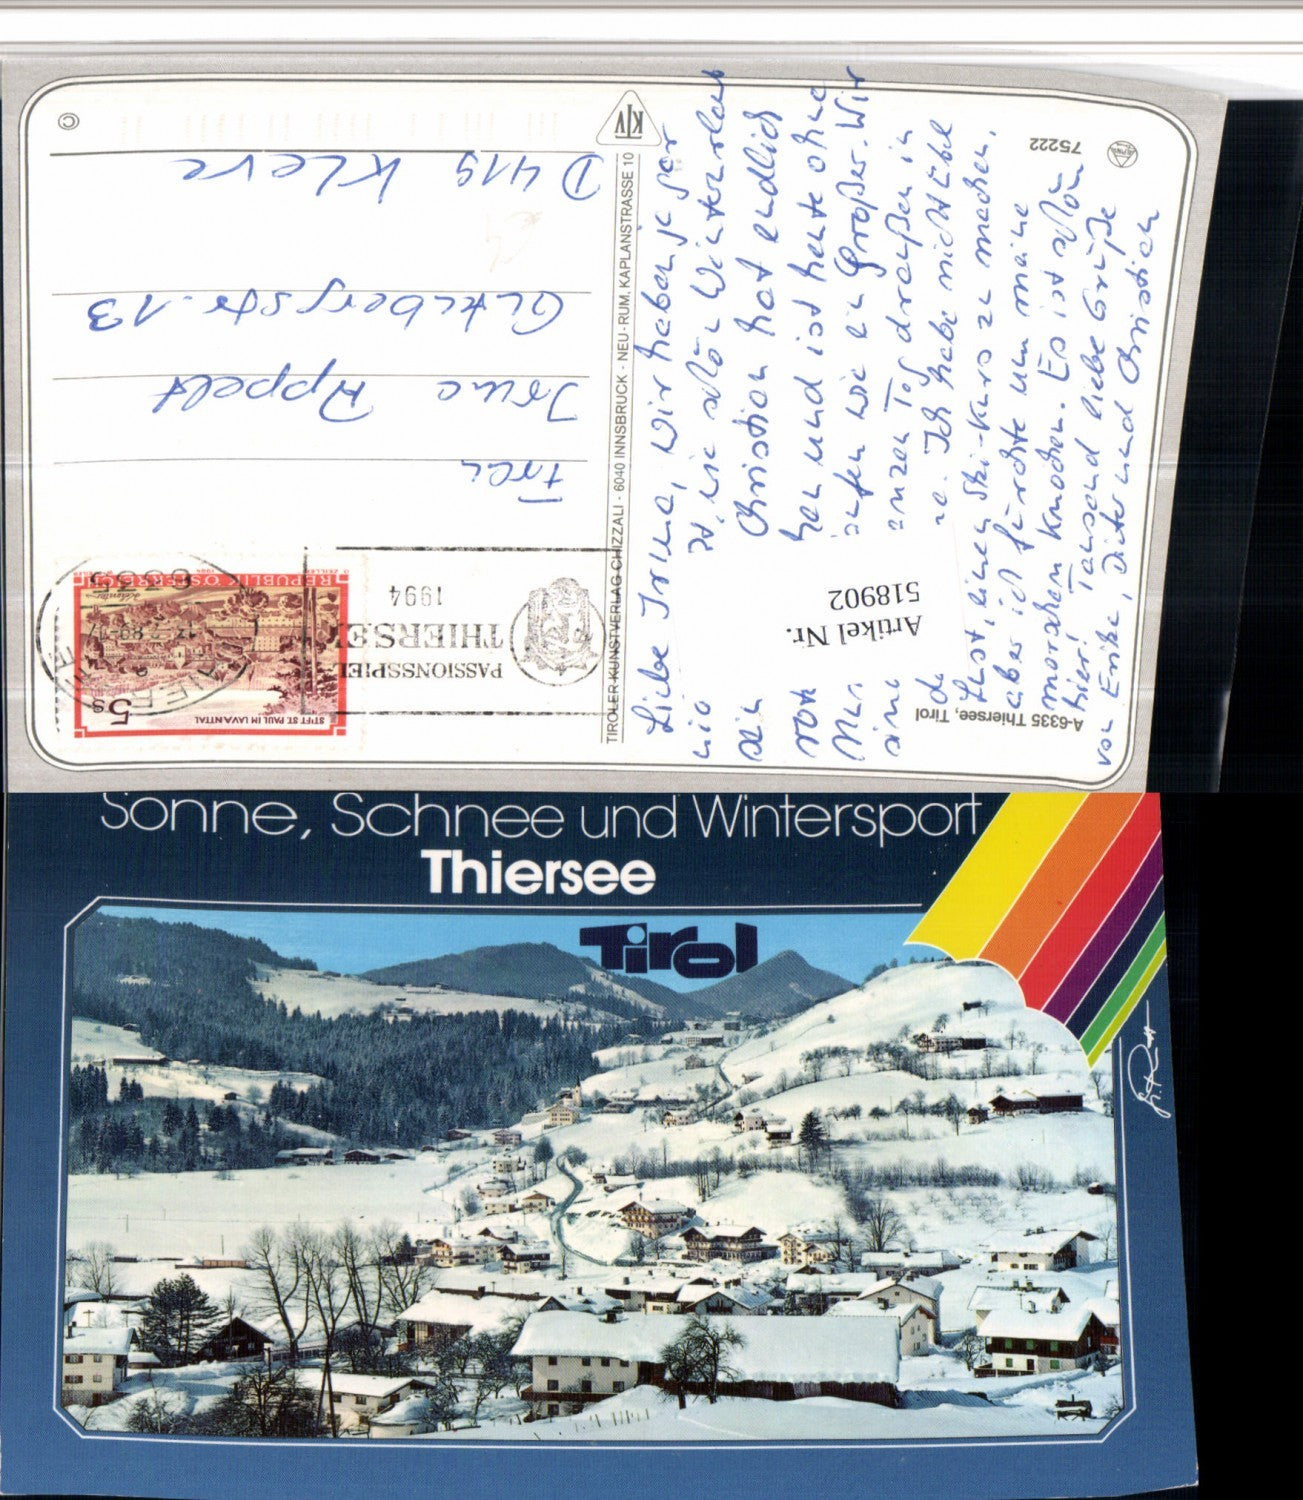 ©
75222
KTV
TIROLER KUNSTVERLAG CHIZZALI - 6040 INNSBRUCK - NEU-RUM, KAPLANSTRASSE 10
A-6335 Thiersee, Tirol
PASSIONSSPIEL
THIERSEE
1994
6335
REPUBLIK ÖSTERREICH
STIFT ST. PAUL IM LAVANTTAL
5s
Frau
Irene Appelt
13
D 419 Kleve
Liebe Irene, Wir haben ja gar
nie
so schön Winterurlaub
Christian hat endlich
hen und ist heute ohne
wie ein Großer. Wir
anzen Tag draußen in
Ich habe nicht übel
Lust, einen Ski-Kurs zu machen,
aber ich fürchte um meine
morschen Knochen. Es ist schön
hier! Tausend liebe Grüße
von Erika, Dieter und Christian
Artikel Nr.
518902
Sonne, Schnee und Wintersport
Thiersee
Tirol